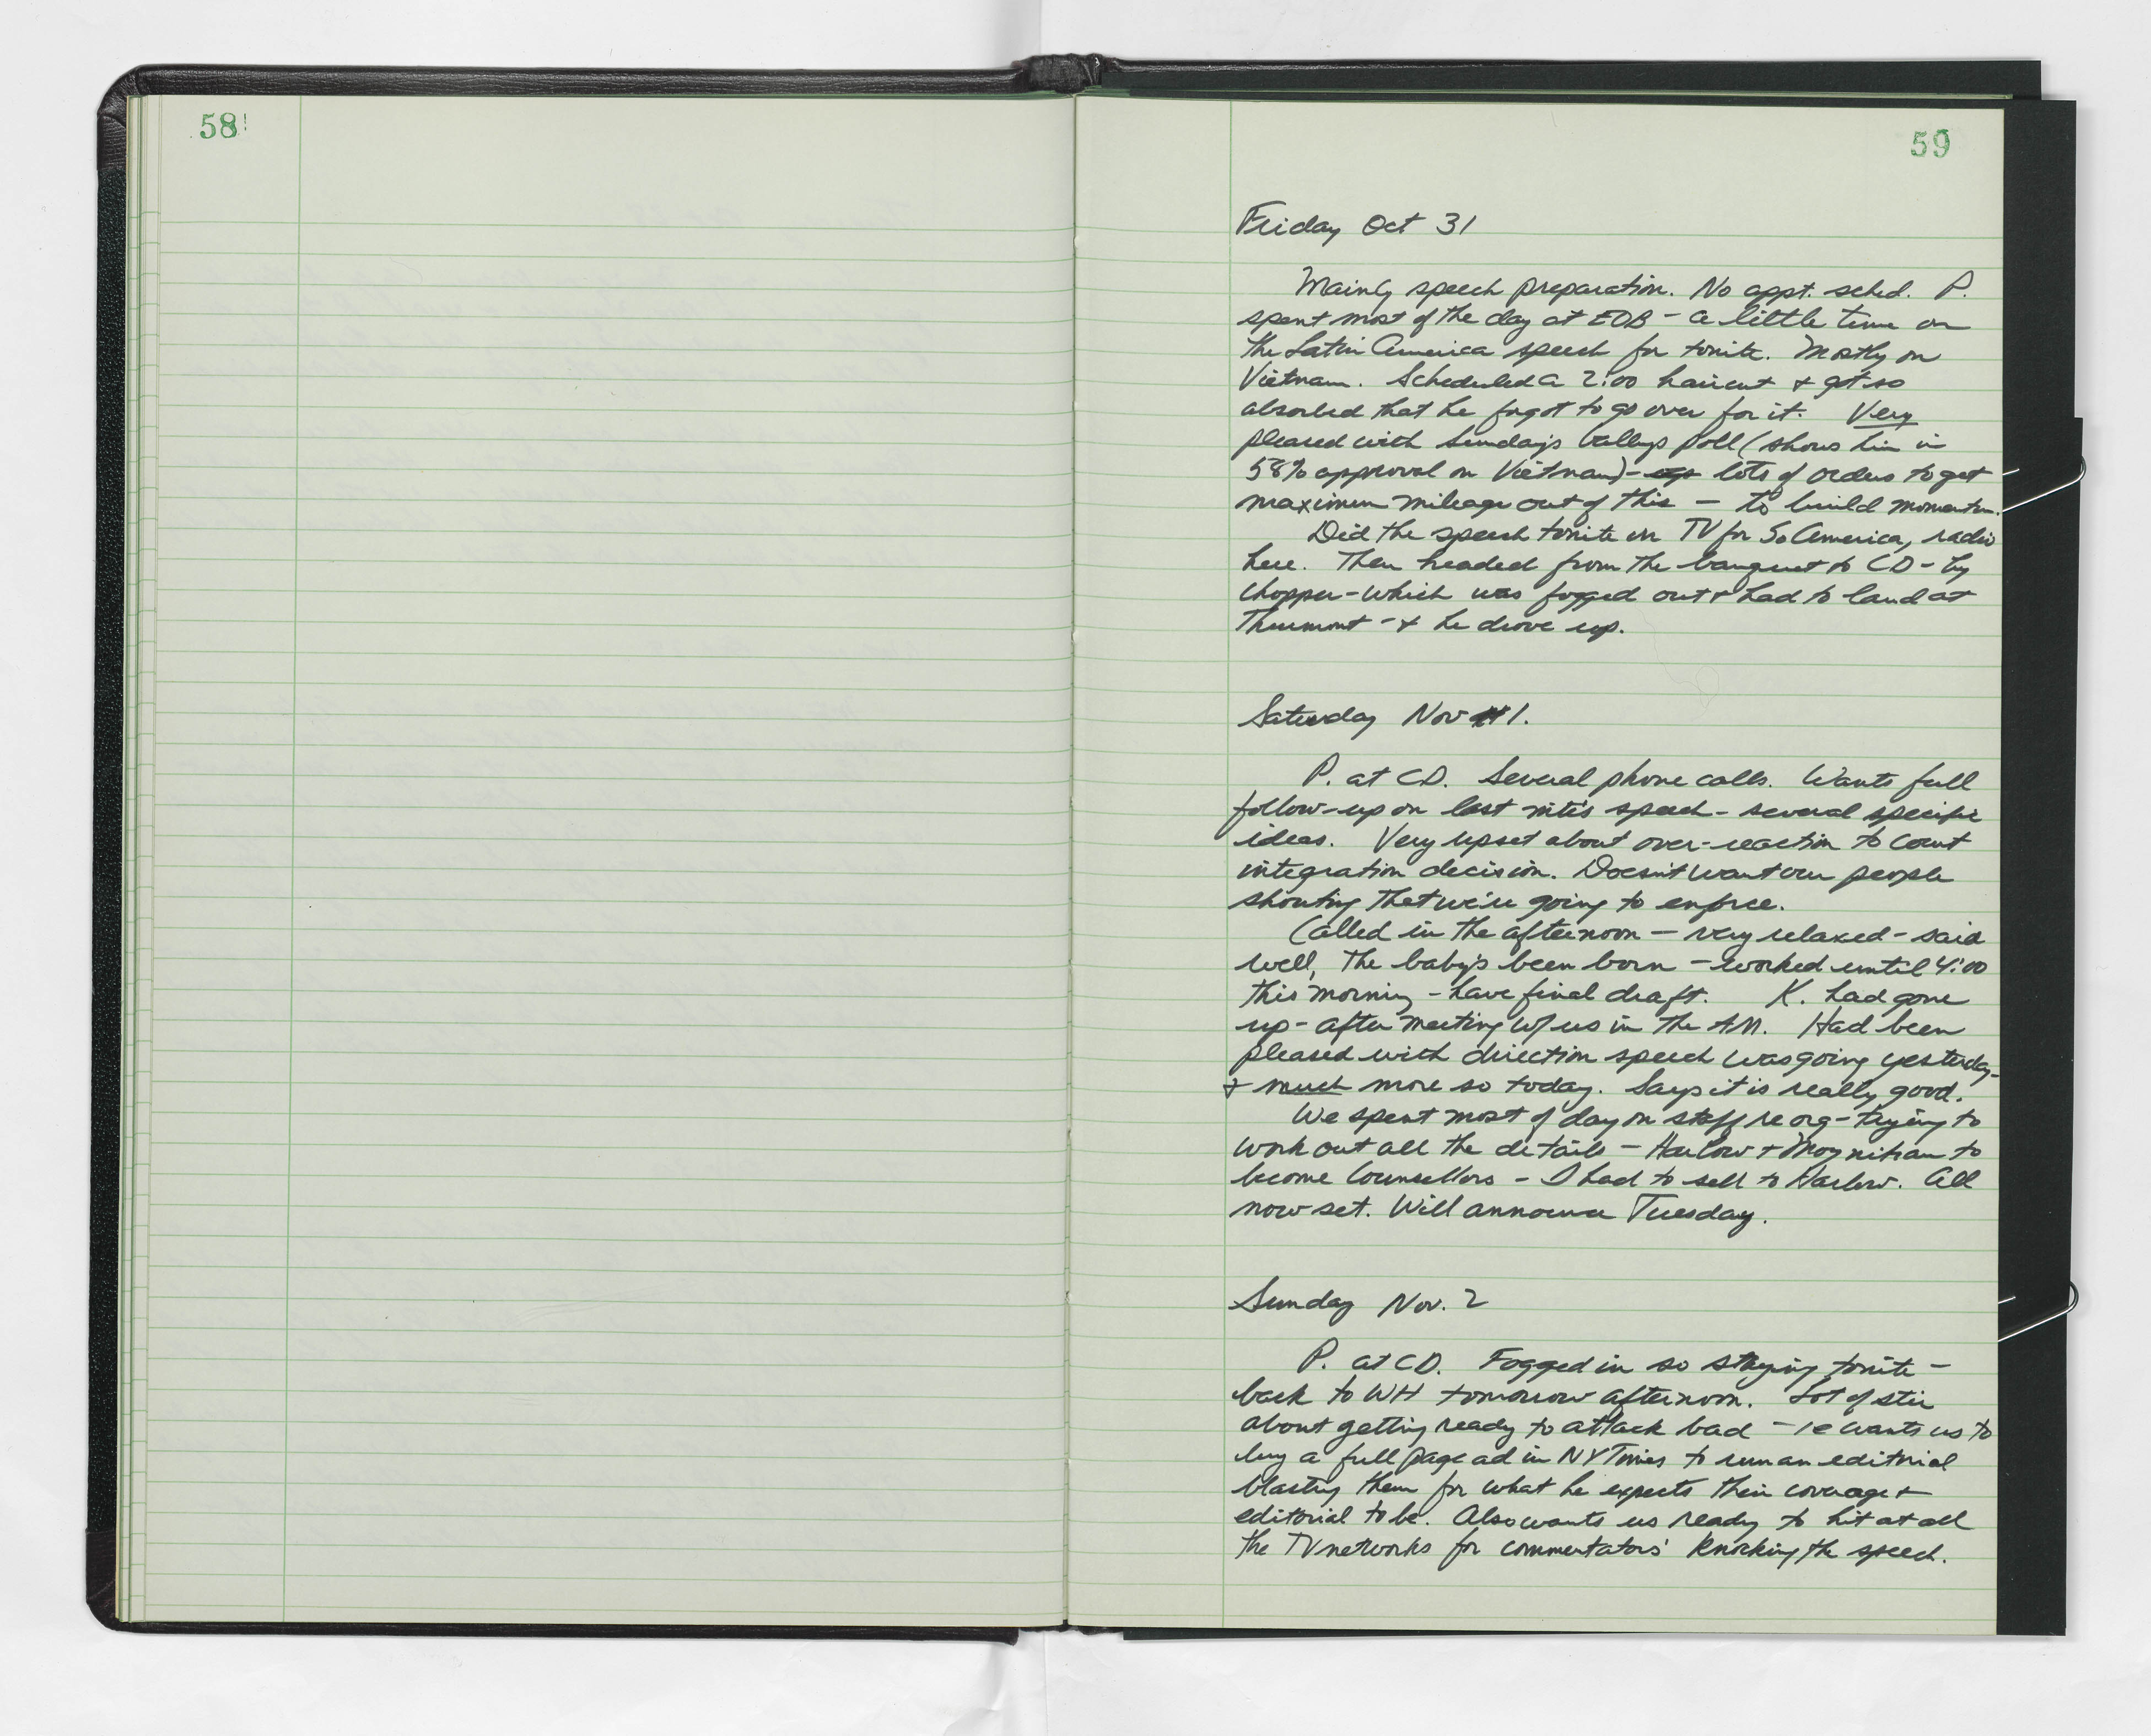 58
59
Friday Oct 31
Mainly speech preparation. No appt. sched. P.
spent most of the day at EOB - a little time on
the Latin America speech for tonite. Mostly on
Vietnam. Scheduled a 2:00 haircut & got so
absorbed that he forgot to go over for it. Very
pleased with Sunday's Gallup poll (shows him in
58% approval on Vietnam) - lots of orders to get
maximum mileage out of this - to build momentum.
Did the speech tonite on TV for So America, radio
here. Then headed from the banquet to CD - by
chopper - which was fogged out & had to land at
Thurmont - & he drove up.
Saturday Nov 1.
P. at CD. Several phone calls. Wants full
follow-up on last nite's speech - several specific
ideas. Very upset about over-reaction to Court
integration decision. Doesn't want our people
shouting that we're going to enforce.
Called in the afternoon - very relaxed - said
well, the baby's been born - worked until 4:00
this morning - have final draft. K. had gone
up - after meeting w/ us in the AM. Had been
pleased with direction speech was going yesterday -
& much more so today. Says it is really good.
We spent most of day on staff re org - trying to
work out all the details - Harlow & Moynihan to
become Counsellors - I had to sell to Harlow. All
now set. Will announce Tuesday.
Sunday Nov. 2
P. at CD. Fogged in so staying tonite -
back to WH tomorrow afternoon. Lot of stir
about getting ready to attack bad - ie wants us to
buy a full page ad in NY Times to run an editorial
blasting them for what he expects their coverage &
editorial to be. Also wants us ready to hit at all
the TV networks for commentators' knocking the speech.